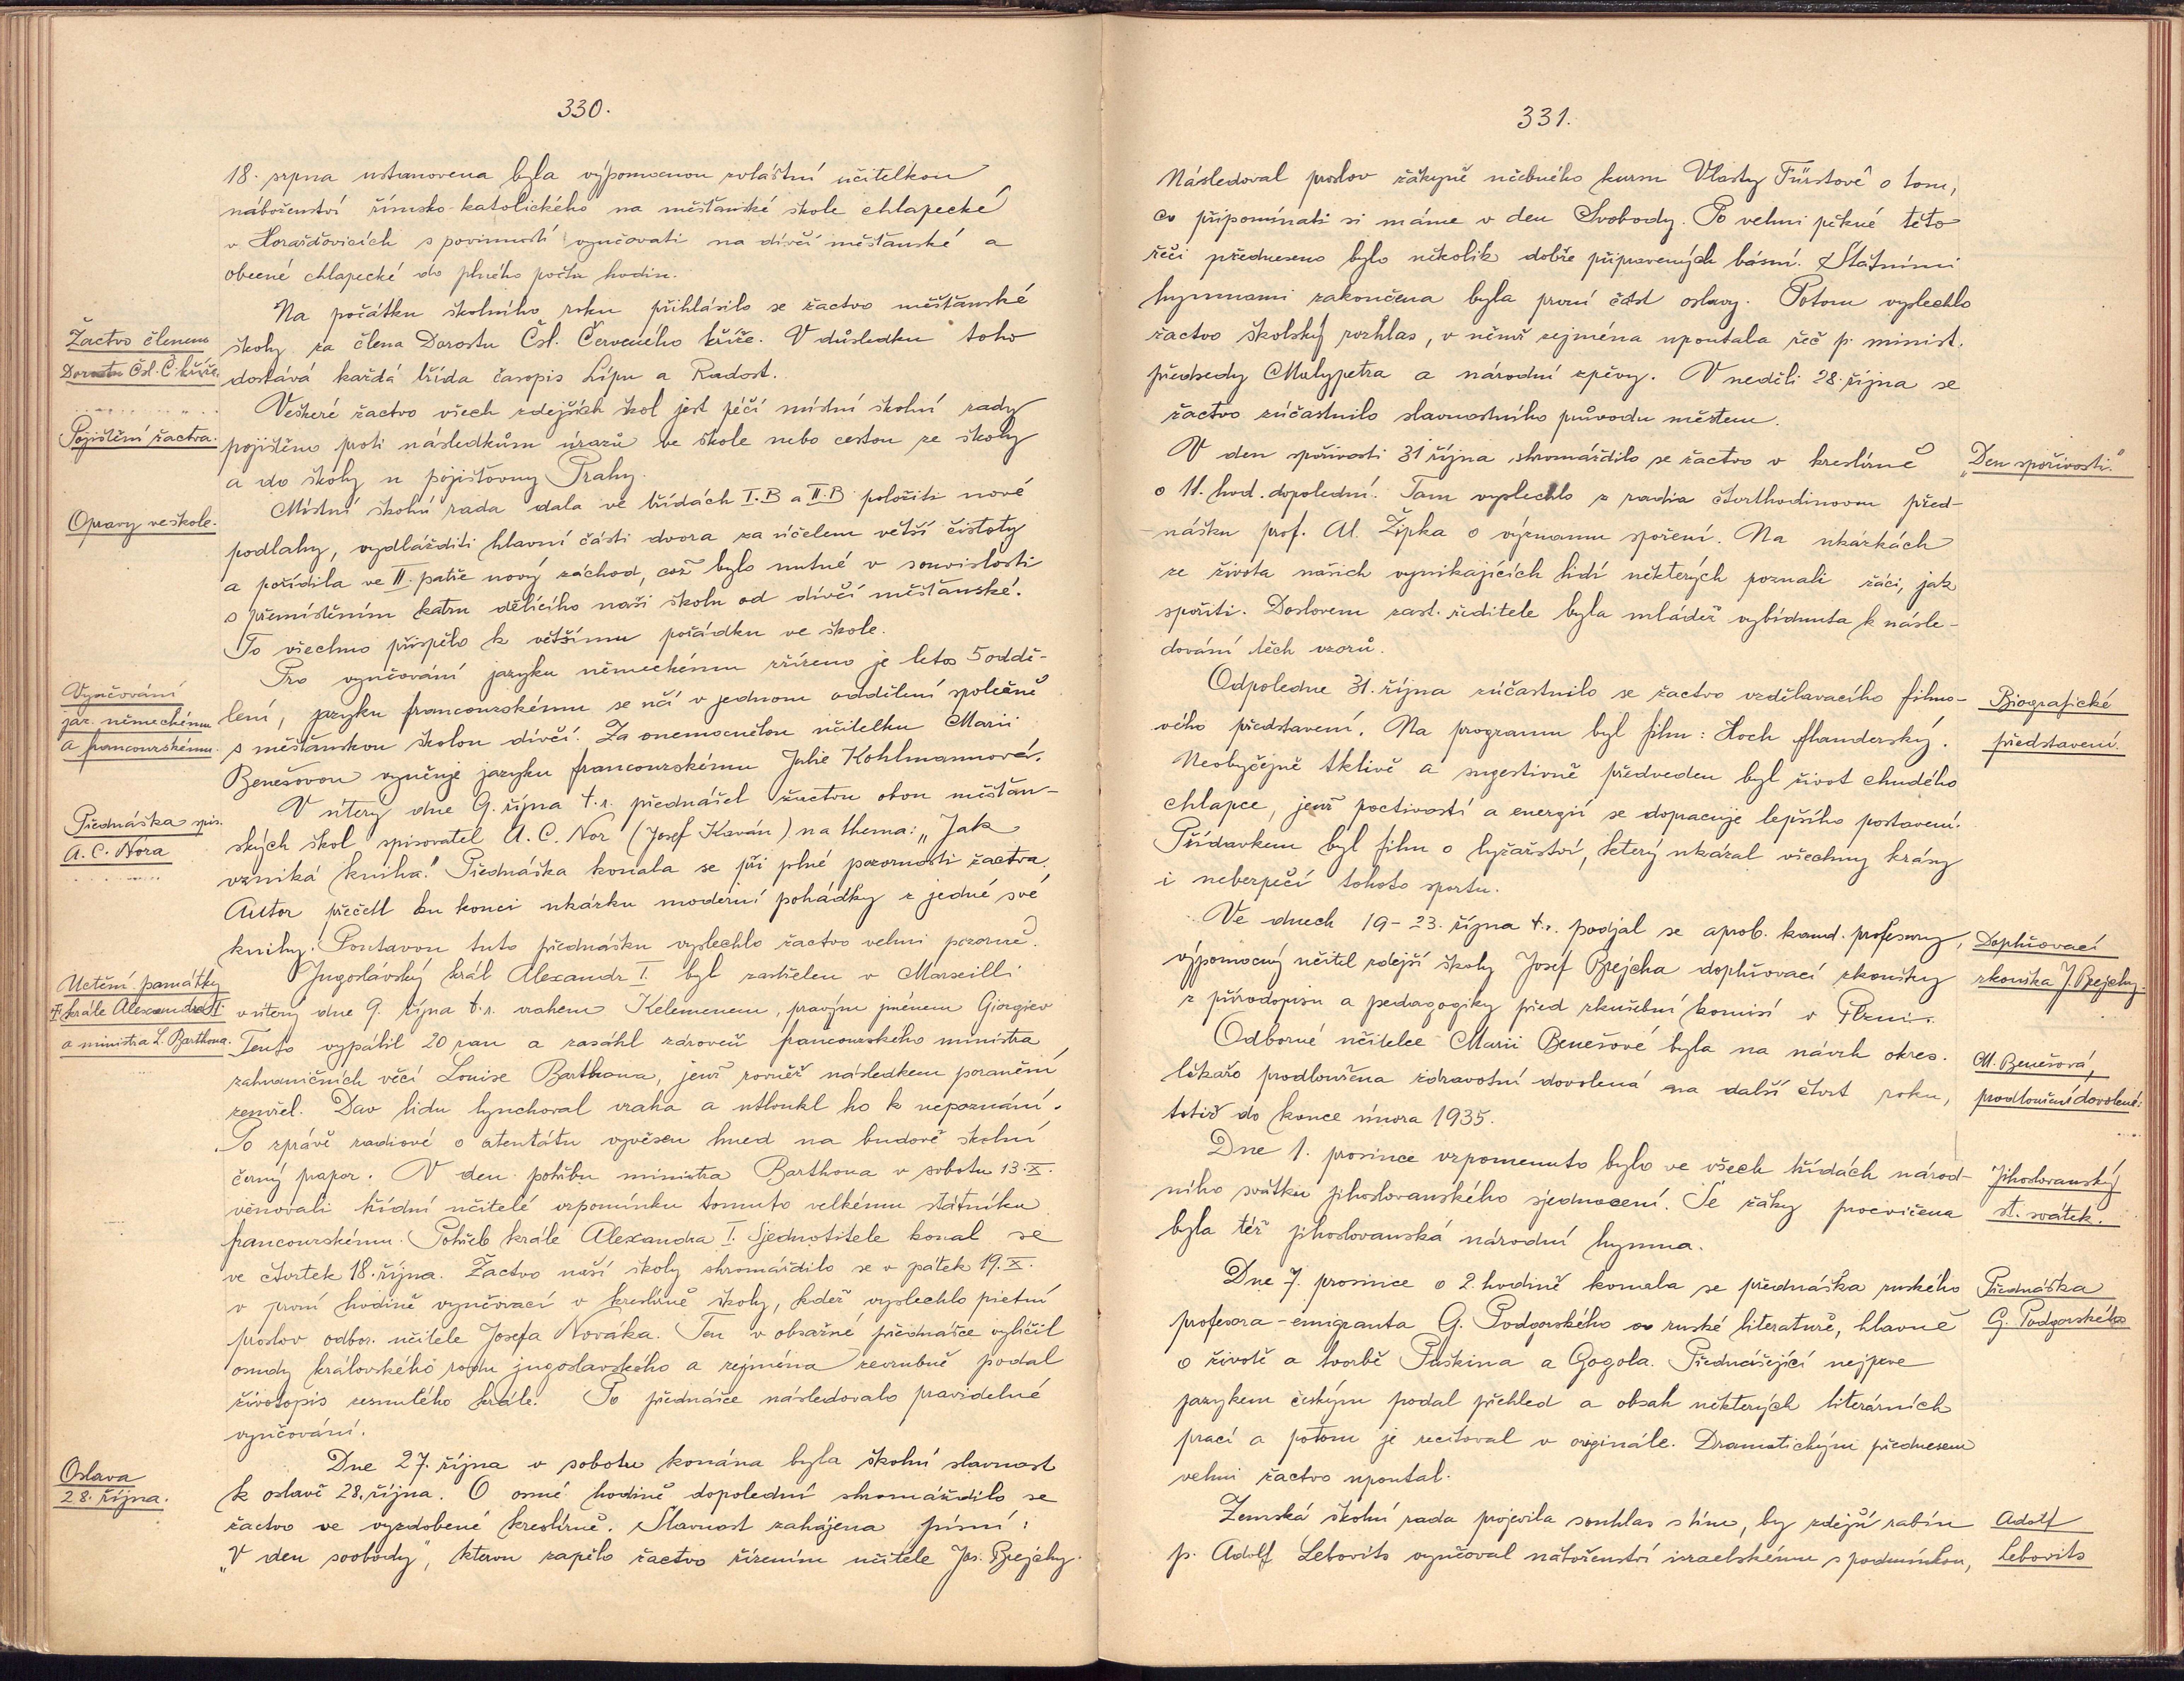 330.
18. srpna ustanovena byla výpomocnou zvláštní učitelkou
náboženství římsko-katolického na měšťanské škole chlapecké
v Horažďovicích s povinností vyučovati na dívčí měšťanské a
obecné chlapecké do plného počtu hodin.
Na počátku školního roku přihlásilo se žactvo měšťanské
Žactvo členem
školy za člena Dorostu Čsl. Červeného kříže. V důsledku toho
Dorostu Čsl. Č. kříže.
dostává každá třída časopis Lípu a Radost.
Veškeré žactvo všech zdejších škol jest péčí místní školní rady
Pojištění žactva.
pojištěno proti následkům úrazů ve škole nebo cestou ze školy
a do školy u pojišťovny Prahy.
Místní školní rada dala ve třídách I.B a II.B položiti nové
Opravy ve škole.
podlahy, vydlážditi hlavní části dvora za účelem větší čistoty
a pořídila ve II. patře nový záchod, což bylo nutné v souvislosti
s přemístěním katru dělícího naši školu od dívčí měšťanské.
To všechno přispělo k většímu pořádku ve škole.
Pro vyučování jazyku německému zřízeno je letos 5 oddě-
Vyučování
jaz. německému
a francouzskému.
lení, jazyku francouzskému se učí v jednom oddělení společně
s měšťanskou školou dívčí. Za onemocnělou učitelku Marii
Benešovou vyučuje jazyku francouzskému Julie Kohlmannová.
V úterý dne 9. října t.r. přednášel žactvu obou měšťan-
Přednáška spis.
A. C. Nora
ských škol spisovatel A. C. Nor (Josef Kaván) na thema: „Jak
vzniká kniha." Přednáška konala se při plné pozornosti žactva.
Autor přečetl ku konci ukázku moderní pohádky z jedné své
knihy. Poutavou tuto přednášku vyslechlo žactvo velmi pozorně.
Jugoslávský král Alexandr I. byl zastřelen v Marseilli
Uctění památky
† krále Alexandra I.
a ministra L. Barthoua.
v úterý dne 9. října t.r. vrahem Kelemenem, pravým jménem Giorgiev
Tento vypálil 20 ran a zasáhl zároveň francouzského ministra
zahraničních věcí Louise Barthoua, jenž rovněž následkem poranění
zemřel. Dav lidu lynchoval vraha a utloukl ho k nepoznání.
Po zprávě radiové o atentátu vyvěšen hned na budově školní
černý prapor. V den pohřbu ministra Barthoua v sobotu 13.X.
věnovali třídní učitelé vzpomínku tomuto velkému státníku
francouzskému. Pohřeb krále Alexandra I. Sjednotitele konal se
ve čtvrtek 18. října. Žactvo naší školy shromáždilo se v pátek 19.X.
v první hodině vyučovací v kreslírně školy, kdež vyslechlo pietní
proslov odbor. učitele Josefa Nováka. Ten v obsažné přednášce vylíčil
osudy královského rodu jugoslavského a zejména zevrubně podal
životopis zesnulého krále. Po přednášce následovalo pravidelné
vyučování.
Dne 27. října v sobotu konána byla školní slavnost
Oslava
28. října.
k oslavě 28. října. O osmé hodině dopolední shromáždilo se
žactvo ve vyzdobené kreslírně. Slavnost zahájena písní:
„V den svobody", kterou zapělo žactvo řízením učitele Jos. Brejchy.
331.
Následoval proslov žákyně učebného kursu Vlasty Fürstové o tom,
co připomínati si máme v den Svobody. Po velmi pěkné této
řeči předneseno bylo několik dobře připravených básní. Státními
hymnami zakončena byla první část oslavy. Potom vyslechlo
žactvo školský rozhlas, v němž zejména upoutala řeč p. minist.
předsedy Malypetra a národní zpěvy. V neděli 28. října se
žactvo zúčastnilo slavnostního průvodu městem.
V den spořivosti 31 října shromáždilo se žactvo v kreslírně
„Den spořivosti."
o 11. hod. dopolední. Tam vyslechlo z radia čtvrthodinovou před-
nášku prof. Al. Žipka o významu spoření. Na ukázkách
ze života našich vynikajících lidí některých poznali žáci, jak
spořiti. Doslovem zast. ředitele byla mládež vybídnuta k násle-
dování těch vzorů.
Odpoledne 31. října zúčastnilo se žactvo vzdělavacího filmo-
Biografické
představení.
vého představení. Na programu byl film: Hoch flanderský.
Neobyčejně tklivě a sugestivně předveden byl život chudého
chlapce, jenž poctivostí a energií se dopracuje lepšího postavení.
Přídavkem byl film o lyžařství, který ukázal všechny krásy
i nebezpečí tohoto sportu.
Ve dnech 19-23. října t.r. podjal se aprob. kand. profesury,
Doplňovací
zkouška J. Brejchy.
výpomocný učitel zdejší školy Josef Brejcha doplňovací zkoušky
z přírodopisu a pedagogiky před zkušební komisí v Plzni.
Odborné učitelce Marii Benešové byla na návrh okres.
M. Benešová,
prodloužení dovolené.
lékaře prodloužena zdravotní dovolená na další čtvrt roku,
totiž do konce února 1935.
Dne 1. prosince vzpomenuto bylo ve všech třídách národ-
Jihoslovanský
st. svátek.
ního svátku jihoslovanského sjednocení. Se žáky procvičena
byla též jihoslovanská národní hymna.
Dne 7. prosince o 2. hodině konala se přednáška ruského
Přednáška
G. Podgorského
profesora-emigranta G. Podgorského o ruské literatuře, hlavně
o životě a tvorbě Puškina a Gogola. Přednášející nejprve
jazykem českým podal přehled a obsah některých literárních
prací a potom je recitoval v originále. Dramatickým přednesem
velmi žactvo upoutal.
Zemská školní rada projevila souhlas s tím, by zdejší rabín
Adolf
Lebovits
p. Adolf Lebovits vyučoval náboženství izraelskému s podmínkou,